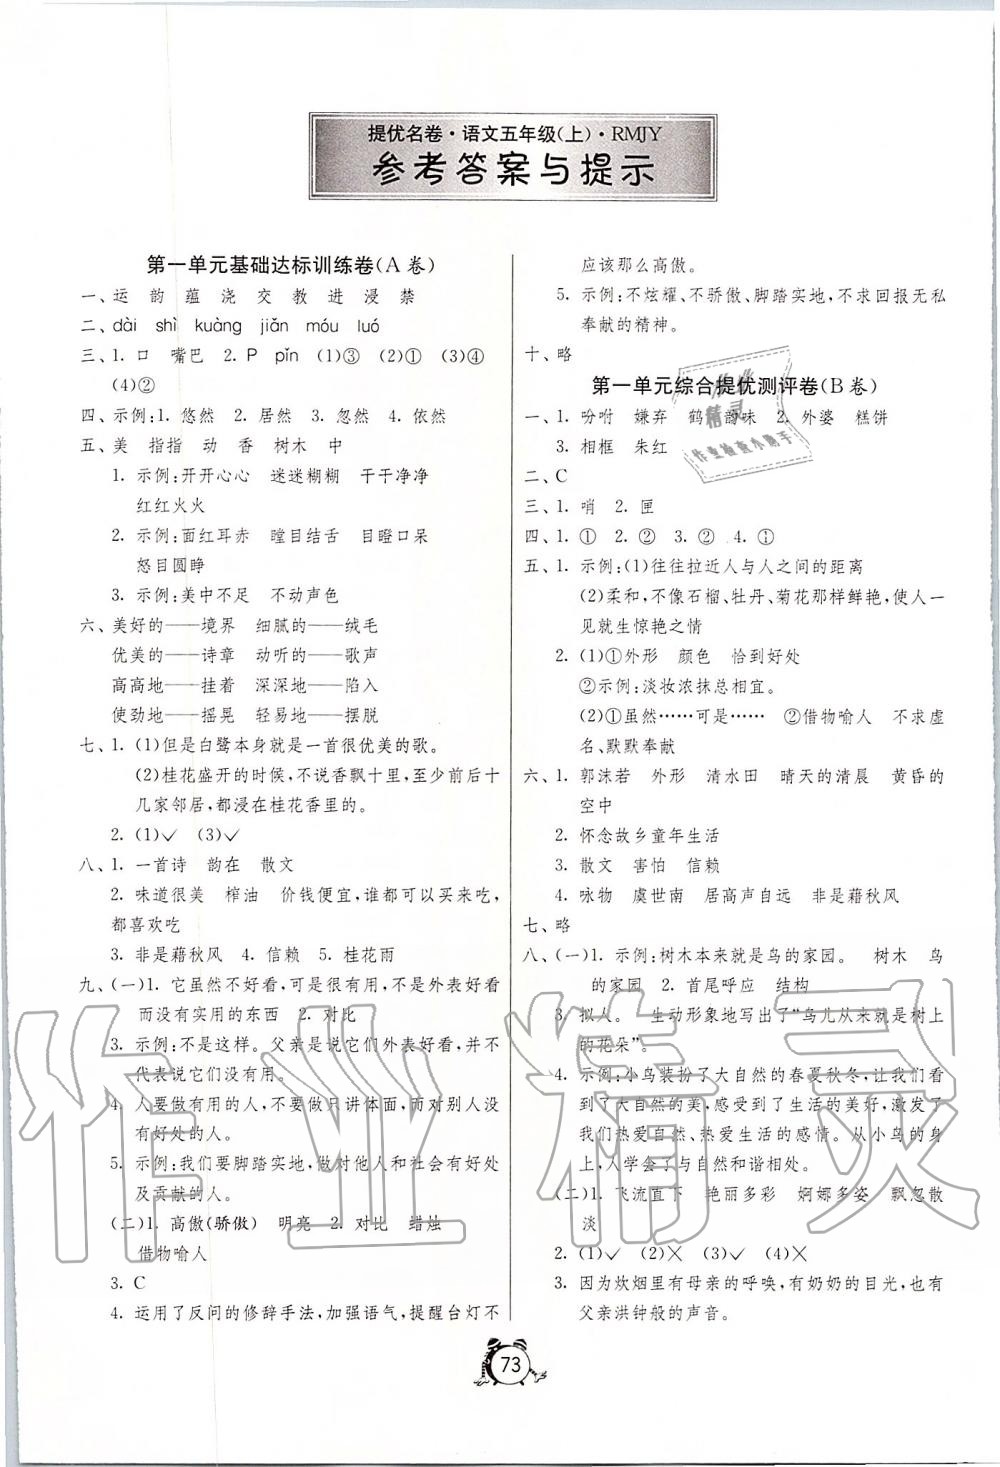 提优名卷·语文五年级(上)·RMJY
参考答案与提示
第一单元基础达标训练卷(A卷)
一、运 韵 蕴 浇 交 教 进 浸 禁
二、dài shì kuàng jiǎn móu luó
三、1. 口 嘴巴 2. P pǐn (1)③ (2)① (3)④
(4)②
四、示例:1. 悠然 2. 居然 3. 忽然 4. 依然
五、美 指指 动 香 树木 中
1. 示例:开开心心 迷迷糊糊 干干净净
红红火火
2. 示例:面红耳赤 瞠目结舌 目瞪口呆
怒目圆睁
3. 示例:美中不足 不动声色
六、美好的——境界 细腻的——绒毛
优美的——诗章 动听的——歌声
高高地——挂着 深深地——陷入
使劲地——摇晃 轻易地——摆脱
七、1. (1)但是白鹭本身就是一首很优美的歌。
(2)桂花盛开的时候,不说香飘十里,至少前后十
几家邻居,都浸在桂花香里的。
2. (1)✓ (3)✓
八、1. 一首诗 韵在 散文
2. 味道很美 榨油 价钱便宜,谁都可以买来吃,
都喜欢吃
3. 非是藉秋风 4. 信赖 5. 桂花雨
九、(一)1. 它虽然不好看,可是很有用,不是外表好看
而没有实用的东西 2. 对比
3. 示例:不是这样。父亲是说它们外表好看,并不
代表说它们没有用。
4. 人要做有用的人,不要做只讲体面,而对别人没
有好处的人。
5. 示例:我们要脚踏实地,做对他人和社会有好处
及贡献的人。
(二)1. 高傲(骄傲) 明亮 2. 对比 蜡烛
借物喻人
3. C
4. 运用了反问的修辞手法,加强语气,提醒台灯不
应该那么高傲。
5. 示例:不炫耀、不骄傲、脚踏实地,不求回报无私
奉献的精神。
十、略
第一单元综合提优测评卷(B卷)
一、1. 吩咐 嫌弃 鹤 韵味 2. 外婆 糕饼
3. 相框 朱红
二、C
三、1. 哨 2. 匣
四、1. ① 2. ② 3. ② 4. ①
五、1. 示例:(1)往往拉近人与人之间的距离
(2)柔和,不像石榴、牡丹、菊花那样鲜艳,使人一
见就生惊艳之情
2. (1)①外形 颜色 恰到好处
②示例:淡妆浓抹总相宜。
(2)①虽然……可是…… ②借物喻人 不求虚
名、默默奉献
六、1. 郭沫若 外形 清水田 晴天的清晨 黄昏的
空中
2. 怀念故乡童年生活
3. 散文 害怕 信赖
4. 咏物 虞世南 居高声自远 非是藉秋风
七、略
八、(一)1. 示例:树木本来就是鸟的家园。 树木 鸟
的家园 2. 首尾呼应 结构
3. 拟人。 生动形象地写出了“鸟儿从来就是树上
的花朵”。
4. 示例:小鸟装扮了大自然的春夏秋冬,让我们看
到了大自然的美,感受到了生活的美好,激发了
我们热爱自然、热爱生活的感情。从小鸟的身
上,人学会了与自然和谐相处。
(二)1. 飞流直下 艳丽多彩 婀娜多姿 飘忽散
淡
2. (1)✓ (2)✗ (3)✓ (4)✗
3. 因为炊烟里有母亲的呼唤,有奶奶的目光,也有
父亲洪钟般的声音。
73
作业精灵
作业精灵
作业检查小助手